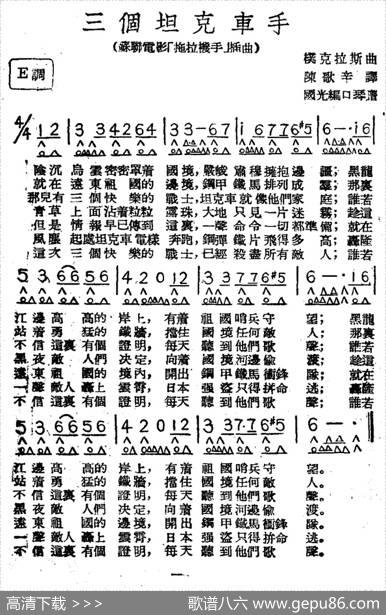 三個坦克車手
(蘇聯電影「拖拉機手」插曲)
E調
樸克拉斯曲
陳歌辛譯
國光編口琴譜
4/4 1 2 | 3 3 3 4 2 6 4 | 3 3—6 7 | 1 6 7 7 6 #5 | 6—·1 6 |
陰沉 烏雲密密罩着 國境，嚴峻 肅穆擁抱邊 疆；黑龍
就在 遠東祖國的 邊境，鋼甲 鐵馬排列成 羣；那裏
那兒有 三個快樂的 戰士，坦克車就像他們家 庭；誰若
青草 上面沾着粒粒 露珠，大地 只見一片迷 霧；趁這
但是 情報早已傳到 這裏，一聲 命令一切都準 備；就在
風馳 起處坦克車電樣 奔跑，鋼彈 鐵片飛得多 高；轟隆
這次 三個快樂的 戰士，已經 殺盡所有敵 人；誰若
5 3. 6 6 5 6 | 4 2 0 1 2 | 3 3 7 7 6 #5 | 6—·1 6 |
江邊 高高的 岸上，有着 祖國哨兵守 望；黑龍
站着 勇猛的 鐵牆，擋住 國境任何敵 人；那裏
不信 這裏有個 證明，每天 聽到他們歌 聲；誰若
黑夜 敵人們 決定，向着 國境河邊偷 渡；趁這
遠東 祖國的 境內，開出 鋼甲鐵馬衝鋒 隊；就在
一聲 敵人轟上 雲霄，日本 强盜只得拼命 逃；轟隆
不信 這裏有個 證明，每天 聽到他們歌 聲；誰若
5 3. 6 6 5 6 | 4 2 0 1 2 | 3 3 7 7 6 #5 | 6—·
江邊 高高的 岸上，有着 祖國哨兵守 望。
站着 勇猛的 鐵牆，擋住 國境任何敵 人。
不信 這裏有個 證明，每天 聽到他們歌 聲。
黑夜 敵人們 決定，向着 國境河邊偷 渡。
遠東 祖國的 邊境，開出 鋼甲鐵馬衝鋒 隊。
一聲 敵人轟上 雲霄，日本 强盜只得拼命 逃。
不信 這裏有個 證明，每天 聽到他們歌 聲。
高清下载 >>> 歌谱八六 www.gepu86.com